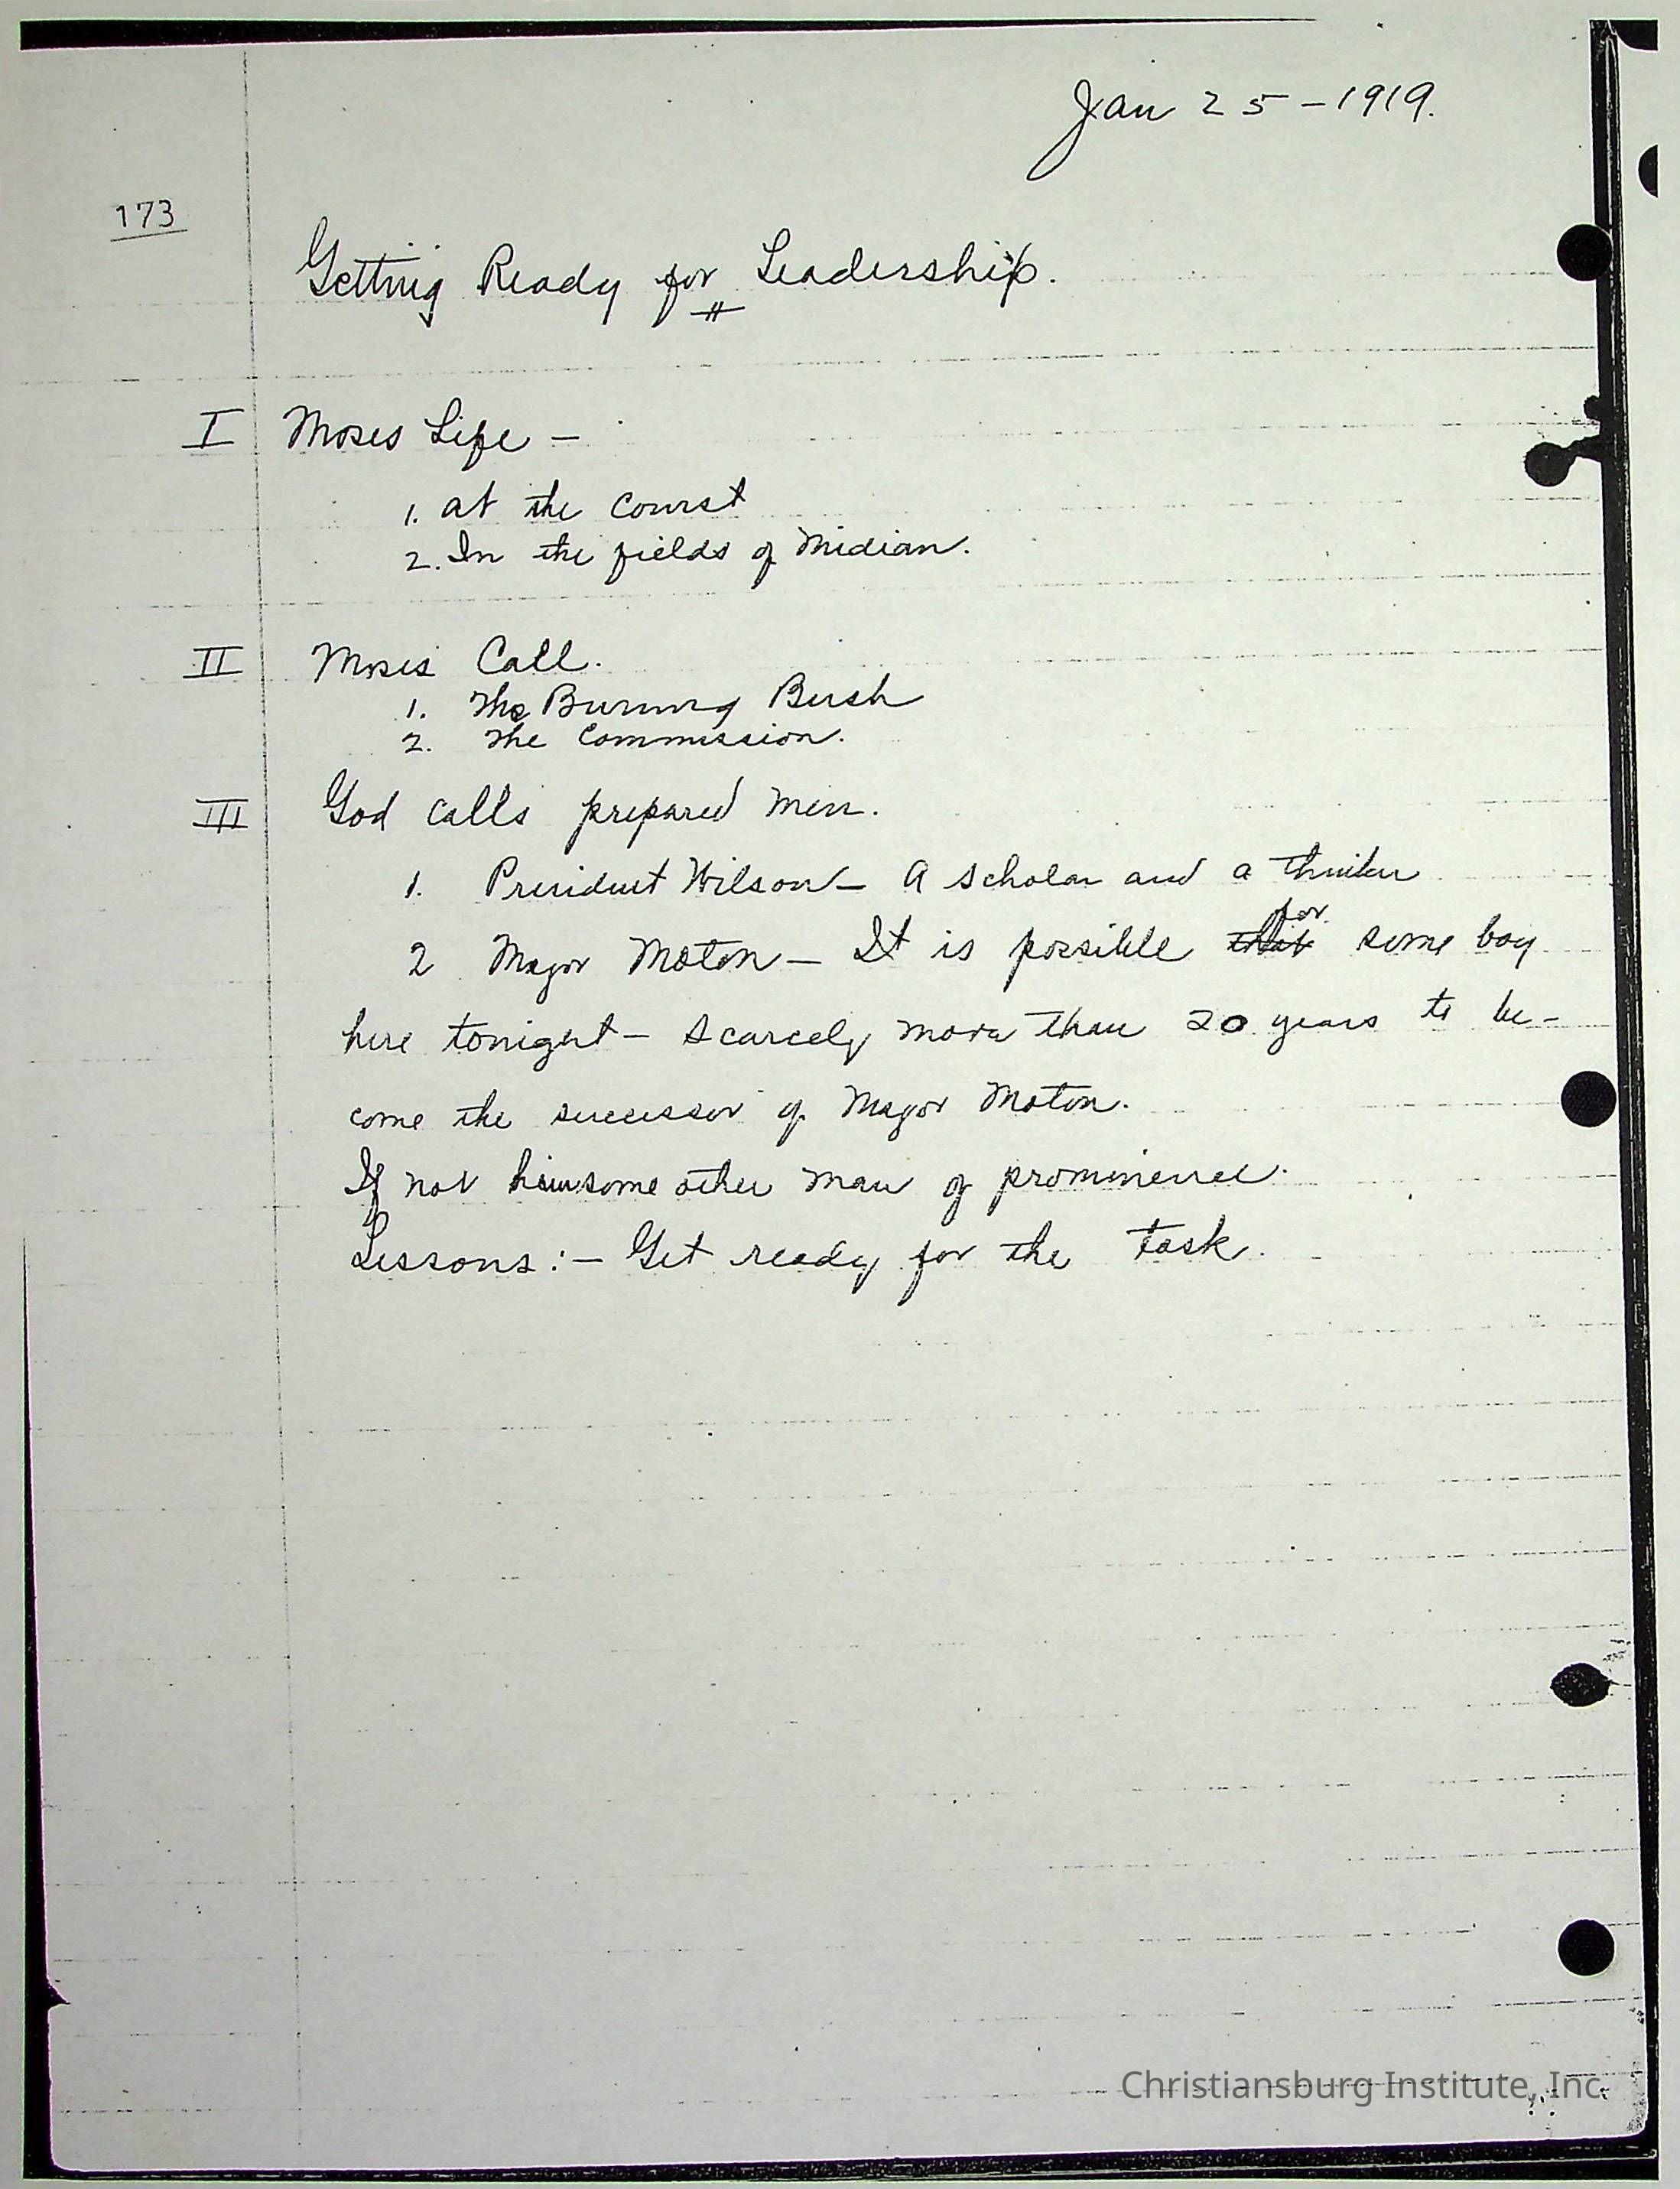 Jan 25-1919.
173
Getting Ready for Leadership.
I Moses Life -
1. at the Court
2. In the fields of Midian.
II Moses Call.
1. The Burning Bush
2. The Commission.
III God calls prepared men.
1. President Wilson - A scholar and a thinker
for
2 Major Moton - It is possible that some boy
here tonight - scarcely more than 20 years to be-
come the successor of Major Moton.
If not him some other man of prominence.
Lessons:- Get ready for the task.
Christiansburg Institute, Inc.